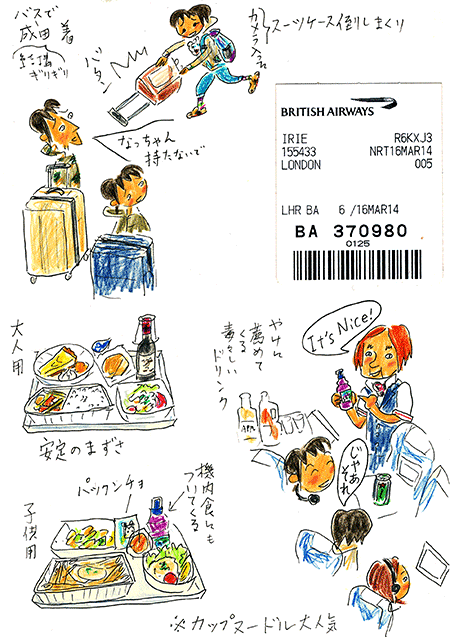 バスで
成田着
結構
ぎりぎり
バタン
スーツケース倒しまくり
なっちゃん
持たないで
BRITISH AIRWAYS
IRIE R6KXJ3
155433 NRT16MAR14
LONDON 005
LHR BA 6 /16MAR14
BA 370980
0125
大人用
安定のまずさ
やけに
薦めて
くる
毒々しい
ドリンク
It's Nice!
じゃあ
それ
子供用
パックンチョ
機内食にも
ついてくる
※カップヌードル大人気